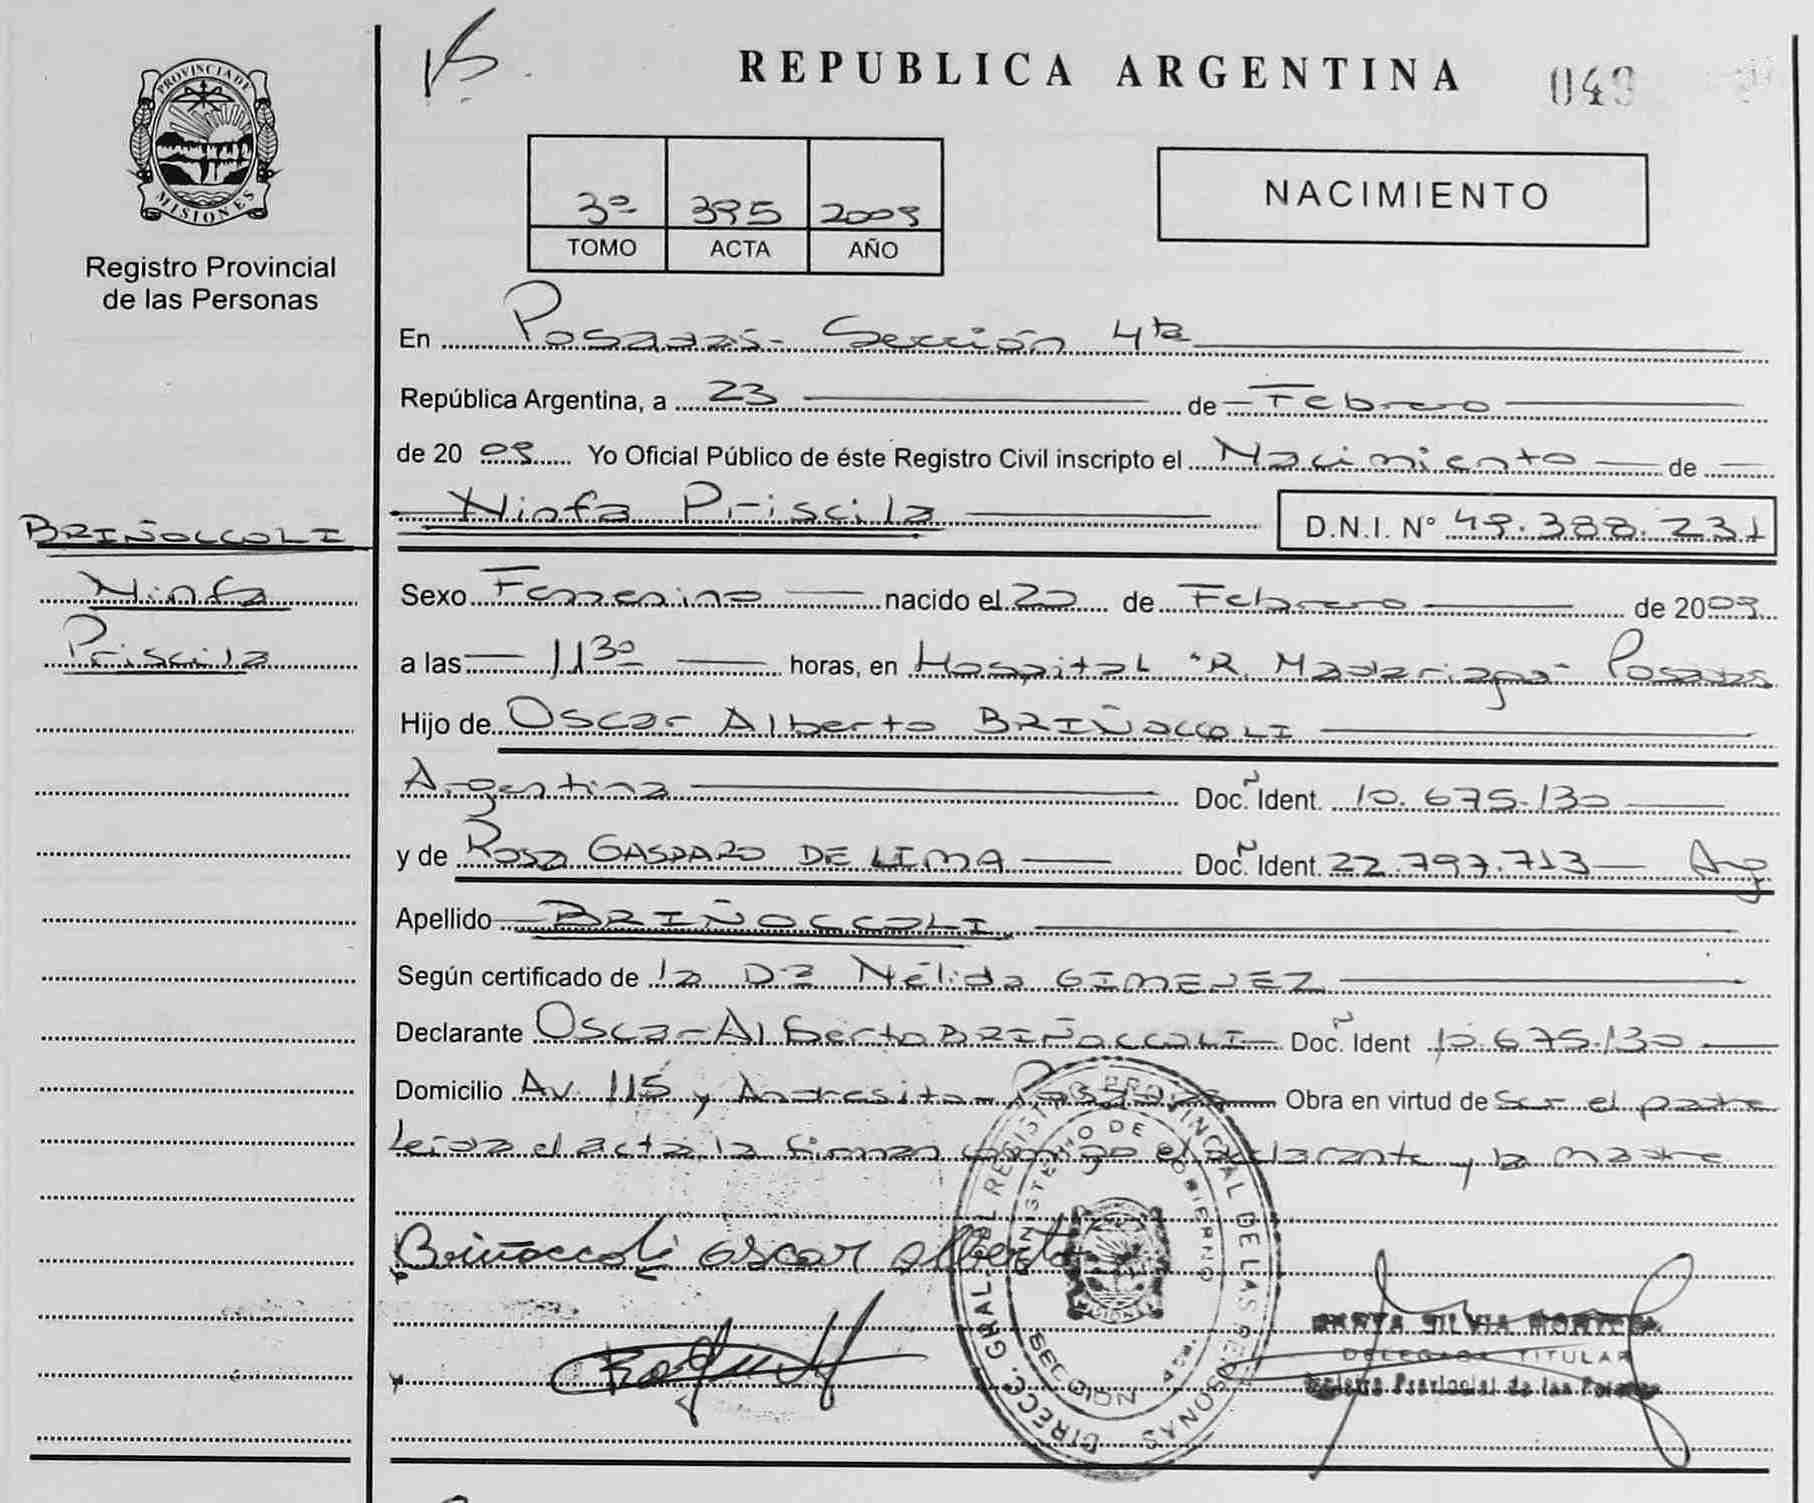 REPUBLICA ARGENTINA
049
PROVINCIA DE
MISIONES
Registro Provincial
de las Personas
3º 395 2009
TOMO ACTA AÑO
NACIMIENTO
En Posadas - Sección 4ta
República Argentina, a 23 de Febrero
de 20 09 Yo Oficial Público de éste Registro Civil inscripto el Nacimiento de
Ninfa Priscila D.N.I. Nº 49.388.231
BRIÑOCCOLI
Ninfa
Priscila
Sexo Femenino nacido el 20 de Febrero de 2009
a las 11³⁰ horas, en Hospital "R. Madariaga" Posadas
Hijo de Oscar Alberto BRIÑOCCOLI
Argentina Doc. Ident. 10.675.130
y de Rosa GASPARO DE LIMA Doc. Ident. 22.797.713 Arg
Apellido BRIÑOCCOLI
Según certificado de la Dra Nélida GIMENEZ
Declarante Oscar Alberto BRIÑOCCOLI Doc. Ident 10.675.130
Domicilio Av. 115 y Andresito - Posadas Obra en virtud de ser el padre
Leida el acta, la firman conmigo el declarante y la madre
Briñoccoli oscar alberto
DIRECC. GRAL. DEL REGISTRO PROVINCIAL DE LAS PERSONAS
MINISTERIO DE GOBIERNO
SECCION 4ta.
SILVIA
DELEGADA TITULAR
Registro Provincial de las Personas